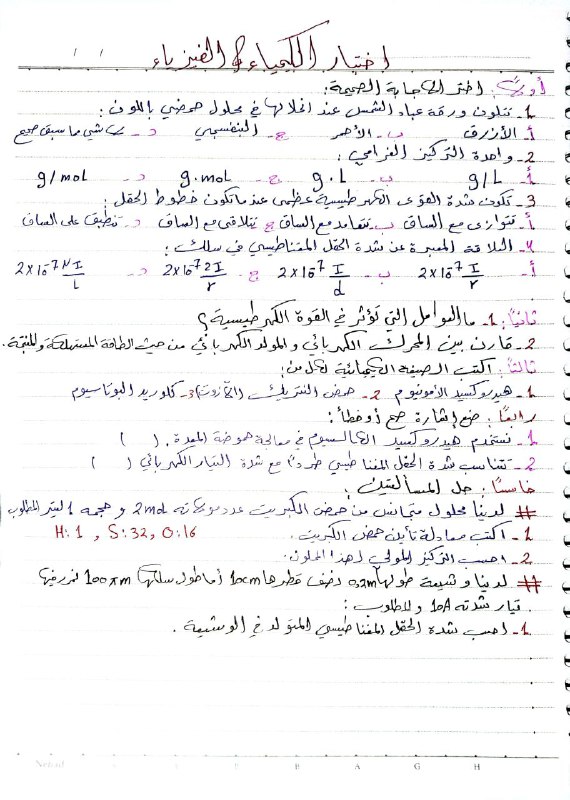 اختبار الكيمياء و الفيزياء
أولاً: اختر الإجابة الصحيحة:
1- تتلون ورقة عباد الشمس عند انحلالها في محلول حمضي باللون:
أ- الأزرق ب- الأحمر ج- البنفسجي د- لا شي مما سبق صحيح
2- واحدة التركيز الغرامي:
أ- g/L ب- g.L ج- g.moL د- g/moL
3- تكون شدة القوى الكهرطيسية عظمى عندما تكون خطوط الحقل:
أ- تتوازى مع الساق ب- تتعامد مع الساق ج- تتلاقى مع الساق د- تنطبق على الساق
4- العلاقة المعبرة عن شدة الحقل المغناطيسي في سلك:
أ- 2×10⁻⁷ I/r ب- 2×10⁻⁷ I/d ج- 2×10⁻⁷ 2I/r د- 2×10⁻⁷ NI/L
ثانياً: 1- ما العوامل التي تؤثر في القوة الكهرطيسية؟
2- قارن بين المحرك الكهربائي والمولد الكهربائي من حيث الطاقة المستهلكة والمنتجة.
ثالثاً: اكتب الصيغة الكيميائية لكل من:
1- هيدروكسيد الأمونيوم 2- حمض النتريك (الآزوت) 3- كلوريد البوتاسيوم
رابعاً: ضع إشارة صح أو خطأ:
1- نستخدم هيدروكسيد الكالسيوم في معالجة حموضة المعدة. ( )
2- تتناسب شدة الحقل المغناطيسي طرداً مع شدة التيار الكهربائي ( )
خامساً: حل المسألتين:
# لدينا محلول متجانس من حمض الكبريت عدد مولاته 2mol و حجمه 1 لتر المطلوب
1- اكتب معادلة تأين حمض الكبريت. H:1 , S:32, O:16
2- احسب التركيز المولي لهذا المحلول.
# لدينا وشيعة طولها 0.2m نصف قطرها 10cm أما طول سلكها 100πm نمرر فيها
تيار شدته 10A والمطلوب:
1- احسب شدة الحقل المغناطيسي المتولد في الوشيعة.